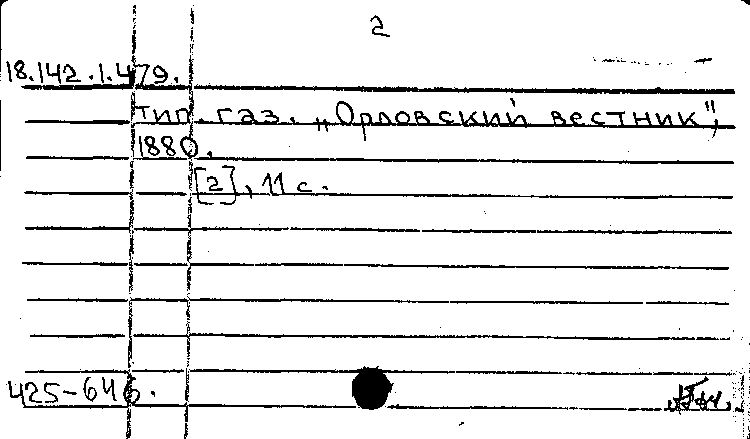 2
18.142.1.479.
тип. газ. „Орловский вестник",
1880.
[2], 11 с.
425-646.